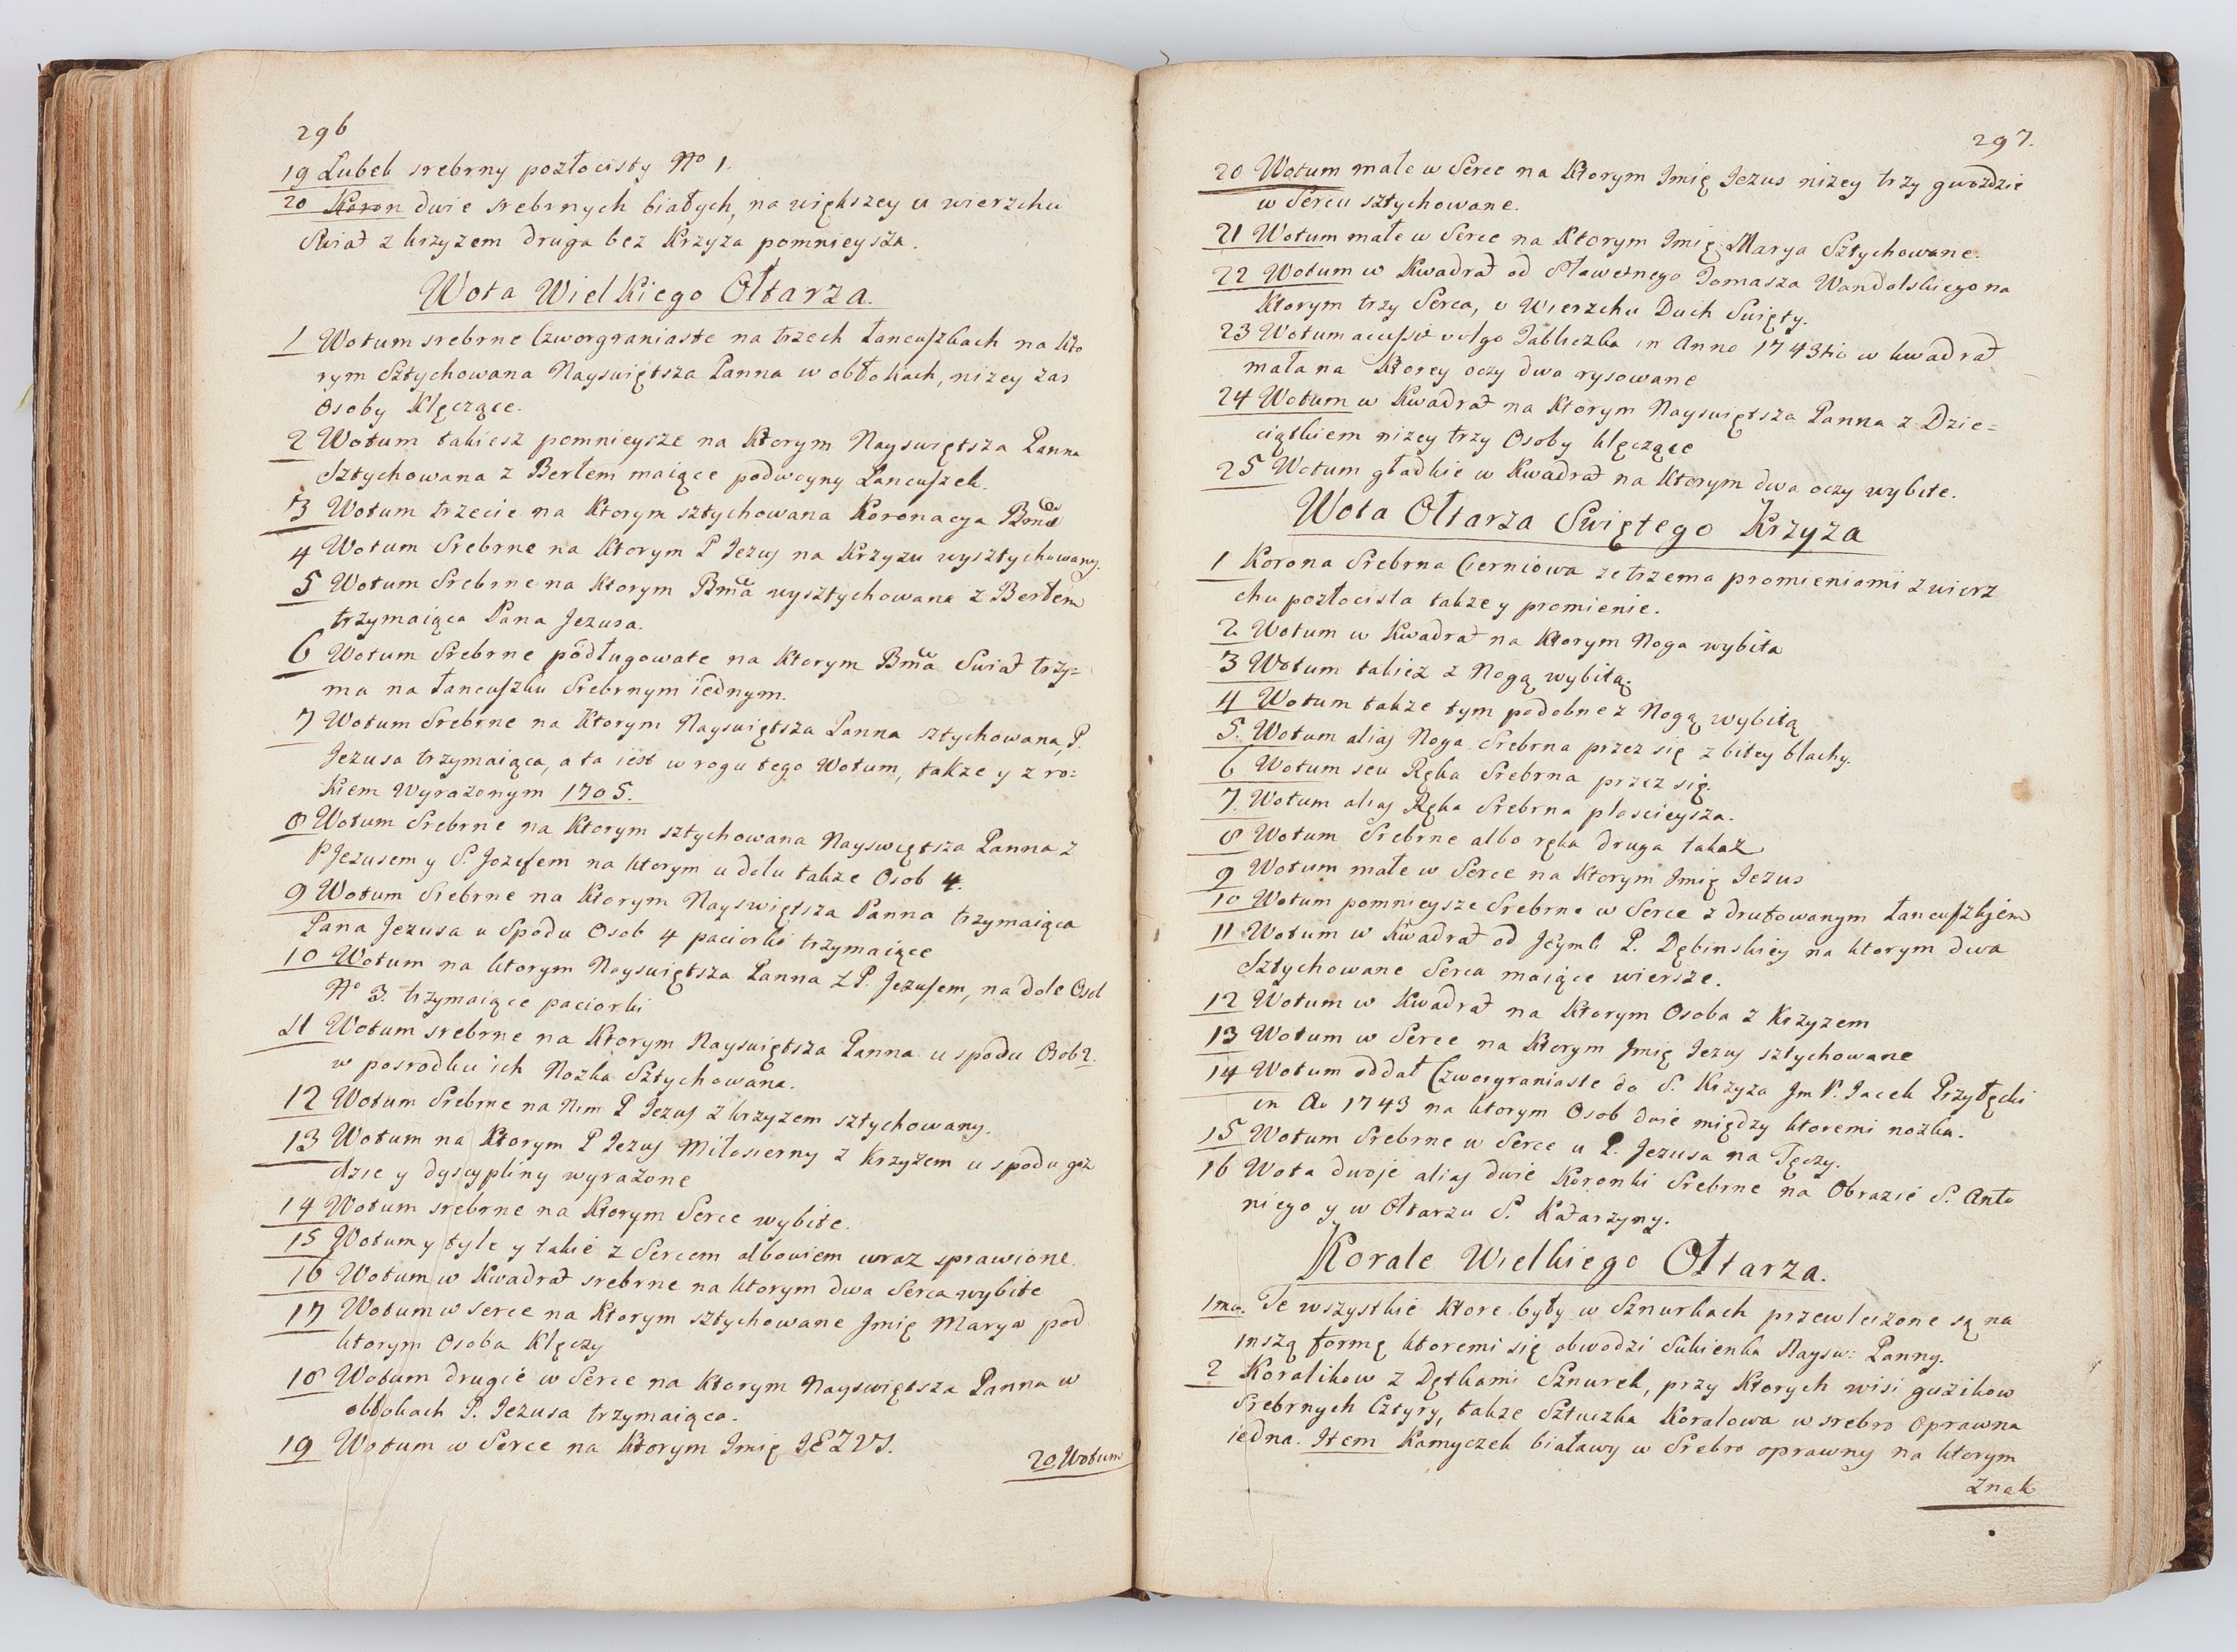 296
19 Lubek srebrny pozłocisty No 1.
20 Koron dwie srebrnych białych, na większey u wierzchu
Swiat z krzyzem druga bez Krzyza pomnieysza.
Wota Wielkiego Ołtarza.
1 Wotum srebrne Czworgraniaste na trzech Łancuszkach na kto
rym Sztychowana Nayswiętsza Panna w obłokach, nizey zas
Osoby Klęczące.
2 Wotum takiesz pomnieysze na Ktorym Nayswiętsza Panna
Sztychowana z Berłem maiące podwoyny Łancuszek.
3 Wotum trzecie na Ktorym sztychowana Koronacya Bmæ
4 Wotum Srebrne na Ktorym P Jezus na Krzyzu wysztychowany.
5 Wotum Srebrne na Ktorym Bma wysztychowana z Berłem
trzymaiąca Pana Jezusa.
6 Wotum Srebrne podługowate na Ktorym Bma Swiat trzy=
ma na Łancuszku Srebrnym iednym.
7 Wotum Srebrne na Ktorym Nayswiętsza Panna sztychowana, P.
Jezusa trzymaiąca, a ta iest w rogu tego Wotum, takze y z ro=
kiem Wyrazonym 1705.
8 Wotum Srebrne na Ktorym sztychowana Nayswiętsza Panna z
P Jezusem y S. Jozefem na ktorym u dołu takze Osob 4.
9 Wotum Srebrne na Ktorym Nayswiętsza Panna trzymaiąca
Pana Jezusa u Spodu Osob 4 paciorki trzymaiące
10 Wotum na ktorym Nayswiętsza Panna z P. Jezusem, na dole Osob
No 3. trzymaiące paciorki
11 Wotum srebrne na Ktorym Nayswiętsza Panna u spodu Osob 2.
w posrodku ich Nozka Sztychowana.
12 Wotum Srebrne na Nim P Jezus z krzyzem sztychowany.
13 Wotum na Ktorym P Jezus Miłosierny z Krzyzem u spodu goz
dzie y dyscypliny wyrazone
14 Wotum srebrne na Ktorym Serce wybite.
15 Wotum y tyle y takie z Sercem albowiem wraz sprawione.
16 Wotum w Kwadrat srebrne na ktorym dwa Serca wybite
17 Wotum w serce na Ktorym sztychowane Jmię Marya pod
ktorym Osoba Klęczy
18 Wotum drugie w Serce na Ktorym Nayswiętsza Panna w
obłokach P. Jezusa trzymaiąca.
19 Wotum w Serce na Ktorym Imię JEZUS.
20 Wotum
297.
20 Wotum małe w Serce na Ktorym Jmię Jezus nizey trzy gwozdzie
w Sercu sztychowane.
21 Wotum małe w Serce na Ktorym Jmię Marya Sztychowane.
22 Wotum w Kwadrat od Sławetnego Tomasza Wandolskiego na
Ktorym trzy Serca, u Wierzchu Duch Swięty.
23 Wotum vulgo Tabliczka in Anno 1743tio w kwadrat
mała na Ktorey oczy dwa rysowane
24 Wotum w Kwadrat na Ktorym Nayswiętsza Panna z Dzie=
ciątkiem nizey trzy Osoby klęczące
25 Wotum gładkie w Kwadrat na Ktorym dwa oczy wybite.
Wota Ołtarza Swiętego Krzyza
1 Korona Srebrna Cierniowa ze trzema promieniami z wierz
chu pozłocista takze y promienie.
2 Wotum w Kwadrat na Ktorym Noga wybita
3 Wotum takiez z Nogą wybitą.
4 Wotum takze tym podobne z Nogą wybitą
5. Wotum alias Noga Srebrna przez się z bitey blachy.
6 Wotum seu Ręka Srebrna przez się.
7. Wotum alias Ręka Srebrna płascieysza.
8 Wotum Srebrne albo ręka druga takaz
9 Wotum małe w Serce na Ktorym Jmię Jezus
10 Wotum pomnieysze Srebrne w Serce z drutowanym Łancuszkiem
11 Wotum w Kwadrat od P. Dębinskiey na ktorym dwa
Sztychowane Serca maiące wiersze.
12 Wotum w Kwadrat na Ktorym Osoba z Krzyzem
13 Wotum w Serce na Ktorym Jmię Jezus sztychowane
14 Wotum oddał Czworgraniaste do S. Krzyza Jm P. Jacek Przyłęcki
in Ao 1743 na ktorym Osob dwie między ktoremi nozka.
15 Wotum Srebrne w Serce u P. Jezusa na Tęczy.
16 Wota dwoje alias dwie Koronki Srebrne na Obrazie S. Anto
niego y w Ołtarzu S. Katarzyny.
Korale Wielkiego Ołtarza.
1mo. Te wszystkie Ktore były w Sznurkach przewleczone są na
inszą formę ktoremi się obwodzi Sukienka Naysw: Panny.
2 Koralikow z Dętkami Sznurek, przy Ktorych wisi guzikow
Srebrnych Cztyry, takze Sztuczka Koralowa w srebro Oprawna
iedna. Item Kamyczek białawy w Srebro oprawny na ktorym
Znak